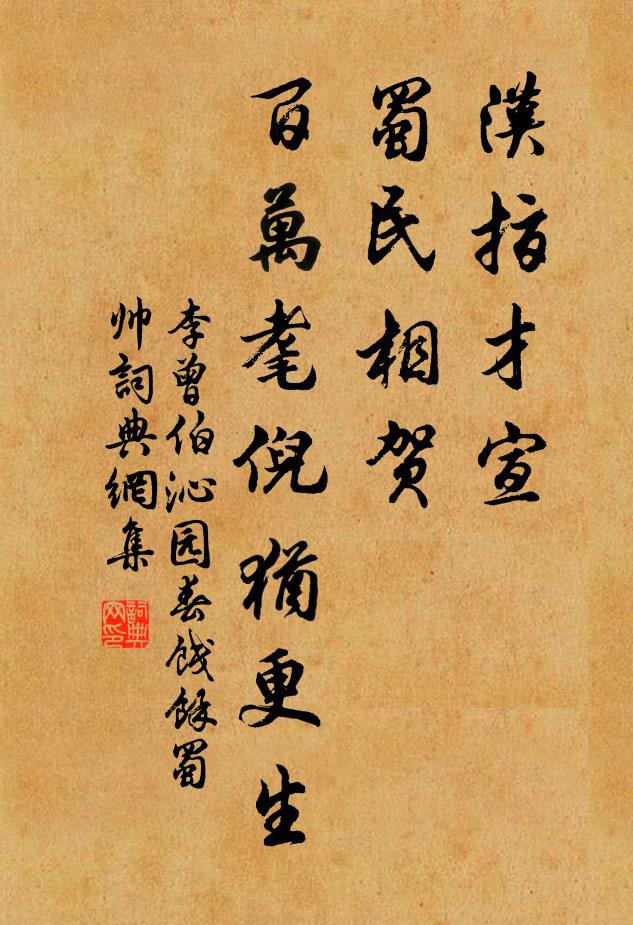 漢指才宣
蜀民相贺
百萬耄倪猶更生
李曾伯沁园春饯餘蜀
帅詞典網集
詞典网印